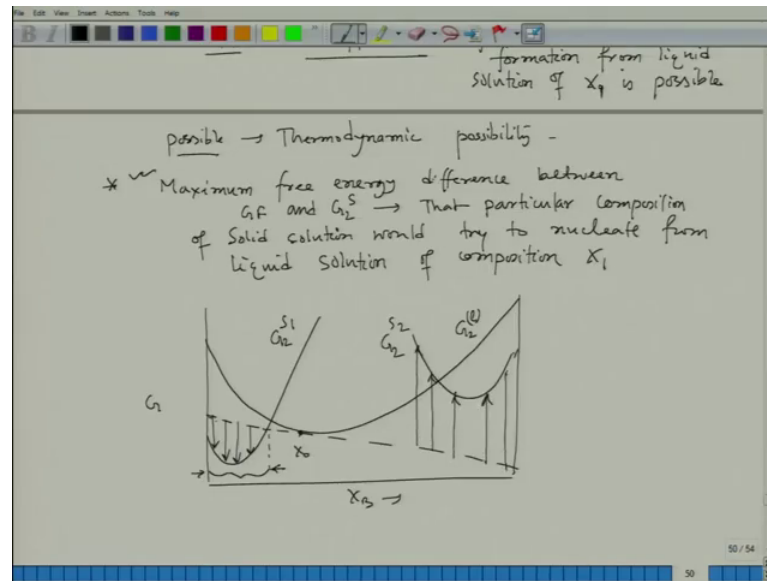 File Edit View Insert Actions Tools Help
B I
formation from liquid
solution of X₁ is possible
possible → Thermodynamic possibility -
* Maximum free energy difference between
GF and G₂ˢ → That particular composition
of Solid solution would try to nucleate from
liquid solution of composition X₁
G₁₂ˢ¹
G₁₂ˢ²
G₁₂⁽ˡ⁾
G
X₀
X_B →
50 / 54
50